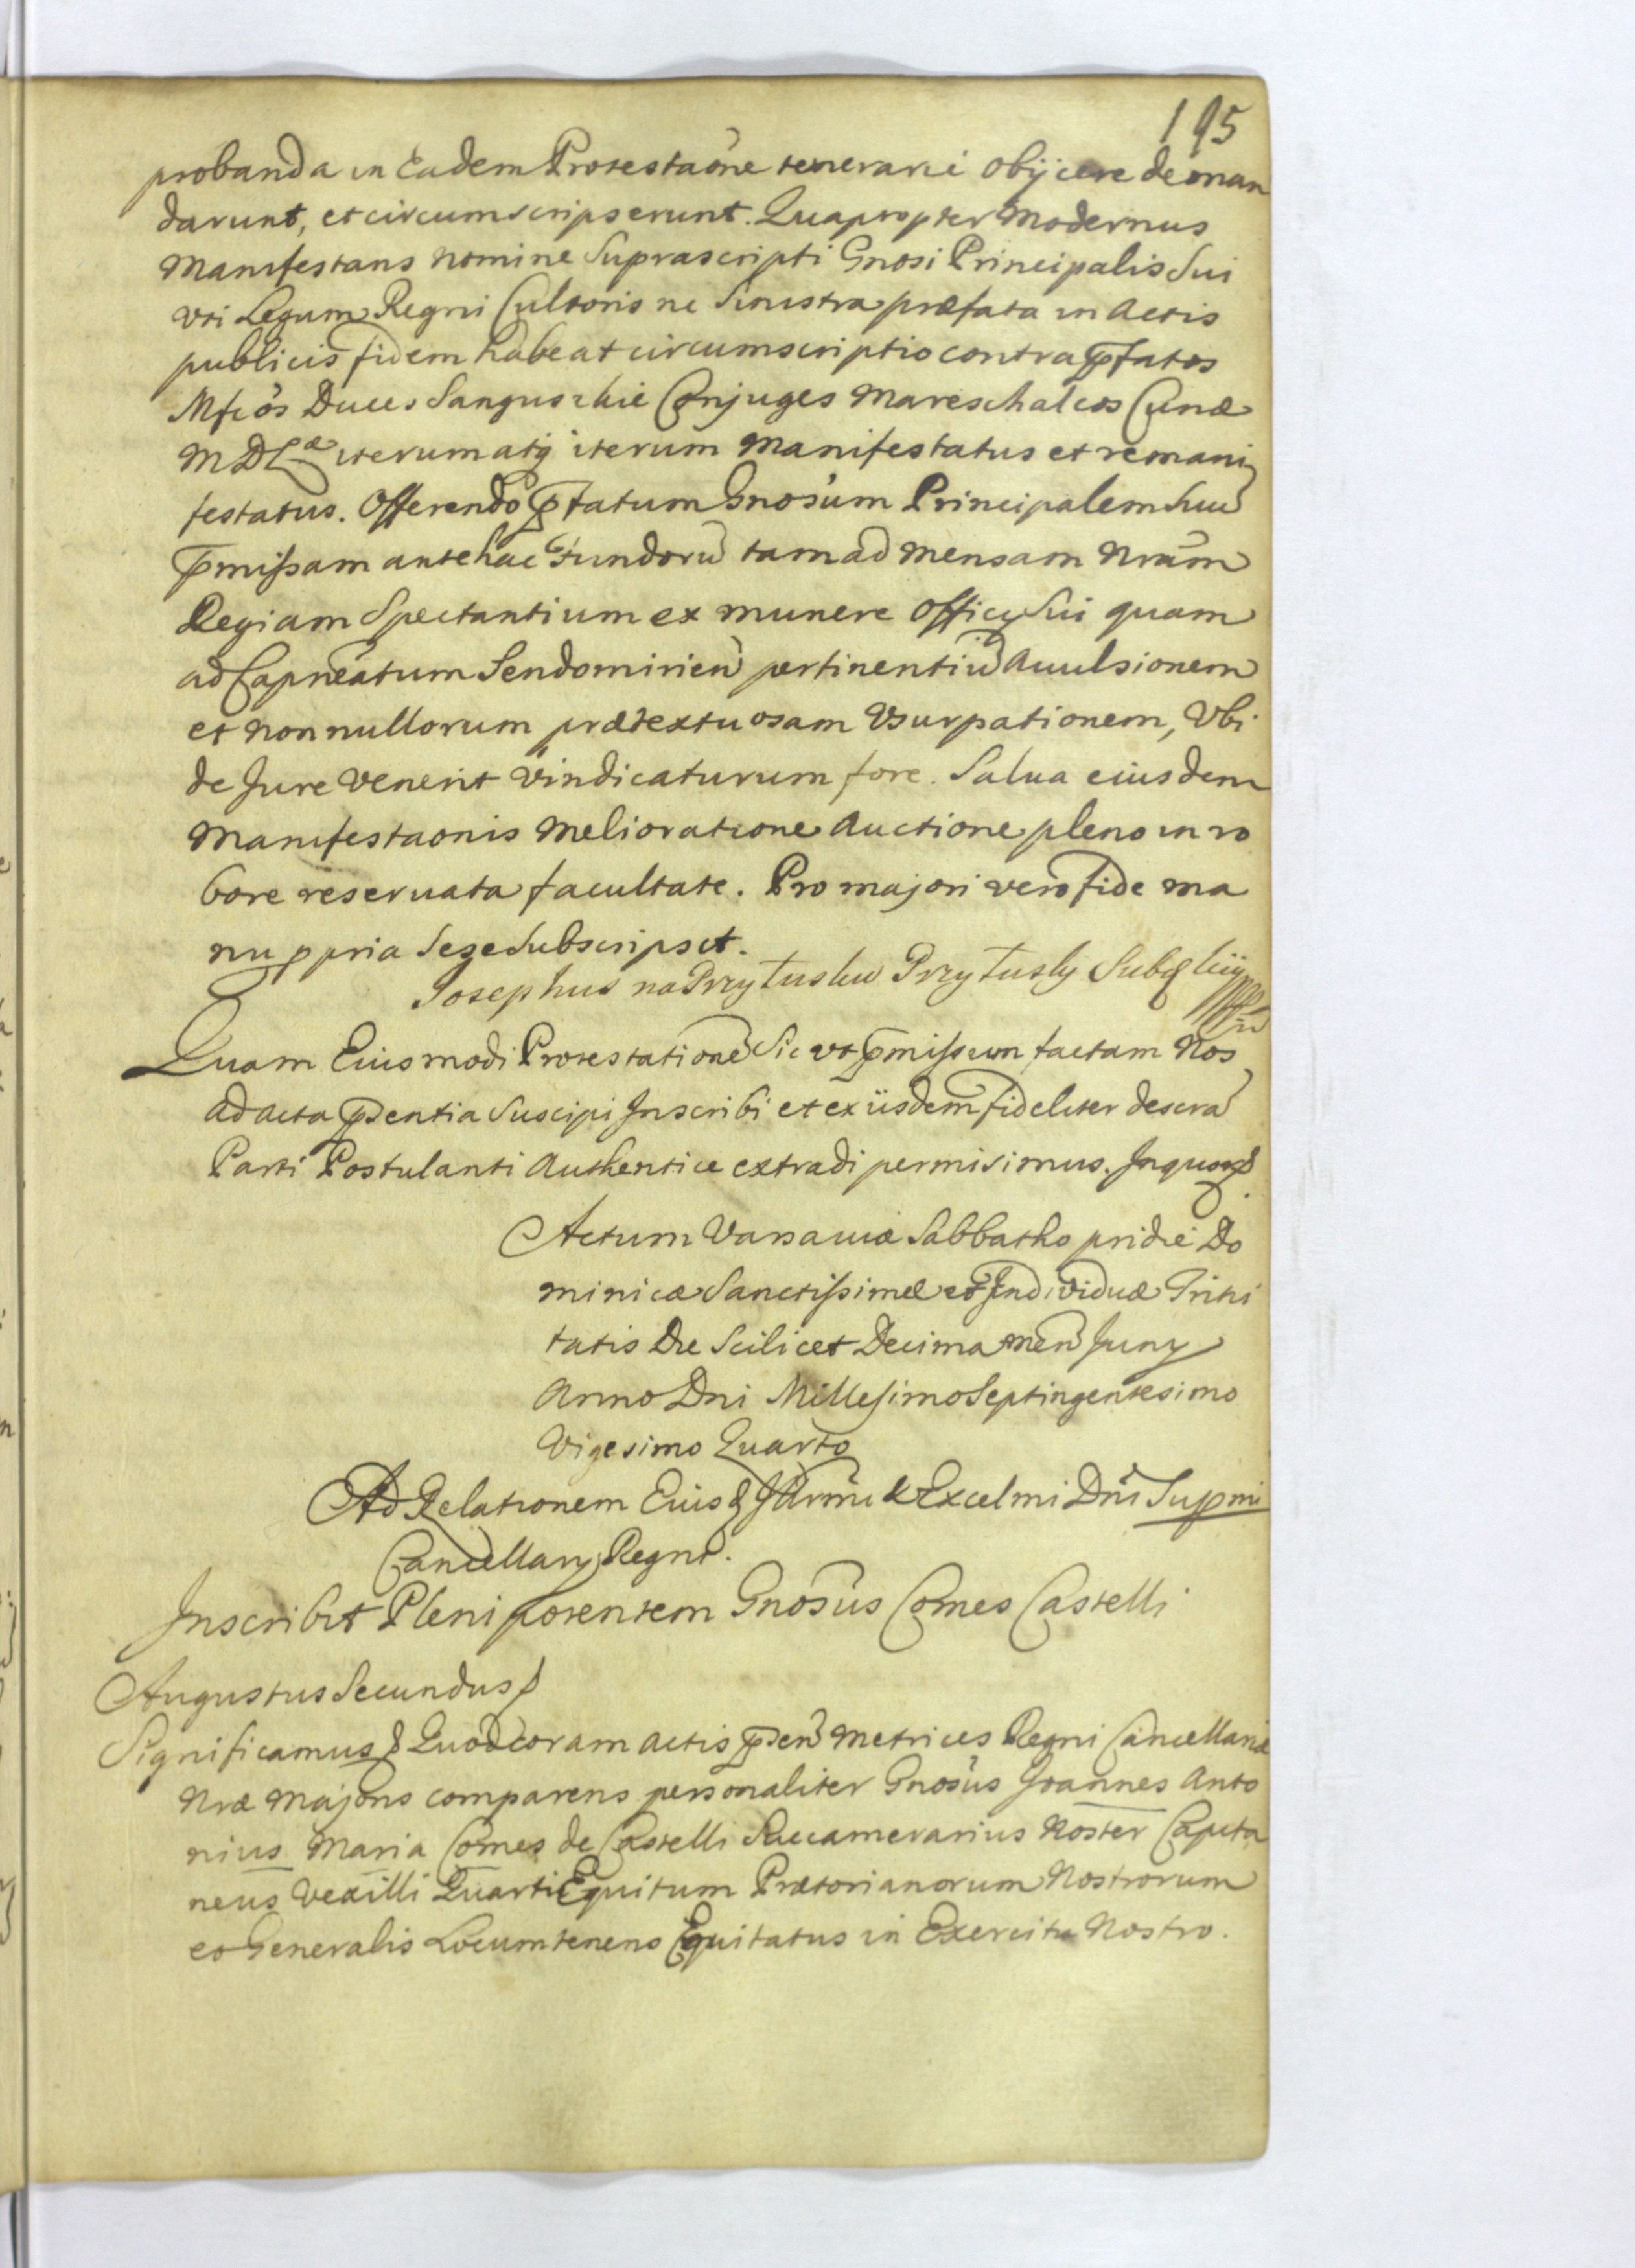 195
probanda in Eadem Protestaõne temerarie obijcere deman
darunt, et circumscripserunt. Quapropter Modernus
Manifestans nomine Suprascripti Gnosi Principalis Sui
vti Legum Regni Cultoris ne Sinistra præfata in Actis
publicis fidem habeat circumscriptio contra p̃fatos
Mfcos Duces Sanguszkie Conjuges Mareschalcos Curiæ
M D Læ iterum atq iterum Manifestatus et remani
festatus. Offerendo p̃fatum Gnosum Principalem Suũ
p̃missam antehac Fundorũ tam ad Mensam Nram
Regiam Spectantium ex munere Officij Sui quam
ad Capneatum Sendomirien̄ pertinentiũ Avulsionem
et nonnullorum prætextuosam Vsurpationem, Vbi
de Jure venerit Vindicaturum fore. Salua eiusdem
Manifestaonis Melioratione Auctione pleno in ro
bore reseruata facultate. Pro majori vero fide ma
nu ppria Sese Subscripsit.
Josephus na Przytusku Przytuski
Quam Eiusmodi Protestationẽ Sic vt p̃missum factam Nos
ad acta p̃sentia Suscipi Inscribi et ex iisdem fideliter descrã
Parti Postulanti Authentice extradi permisimus. In quor
Actum Varsaviæ Sabbatho pridie Do
minicæ Sanctissimæ et Individuæ Trini
tatis Die Scilicet Decima Mens̃ Junij
Anno Dni Millesimo Septingentesimo
Vigesimo Quarto
Ad Relationem Eius & Illrmi & Excelmi Dni Supmi
Cancellarij Regni.
Inscribit Plenipotentem Gnosus Comes Castelli
Augustus Secundus &
Significamus & Quod coram actis p̃sen̄ Metrices Regni Cancellariæ
Nræ Majoris comparens personaliter Gnosus Joannes Anto
nius Maria Comes de Castelli Succamerarius Noster Capita
neus Vexilli Quarti Equitum Prætorianorum Nostrorum
et Generalis Locumtenens Equitatus in Exercitu Nostro.